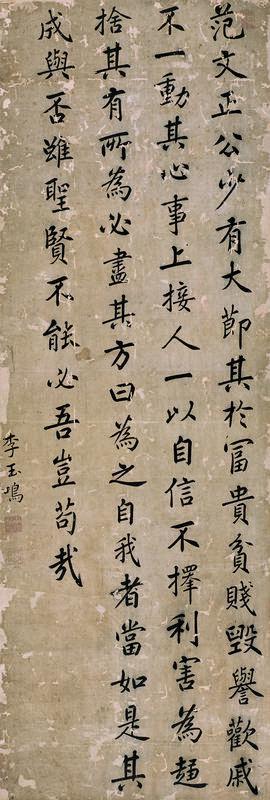 范文正公少有大節其於冨貴貧賤毀譽歡戚
不一動其心事上接人一以自信不擇利害為趨
捨其有所為必盡其方曰為之自我者當如是其
成與否雖聖賢不能必吾豈苟哉
李玉鳴